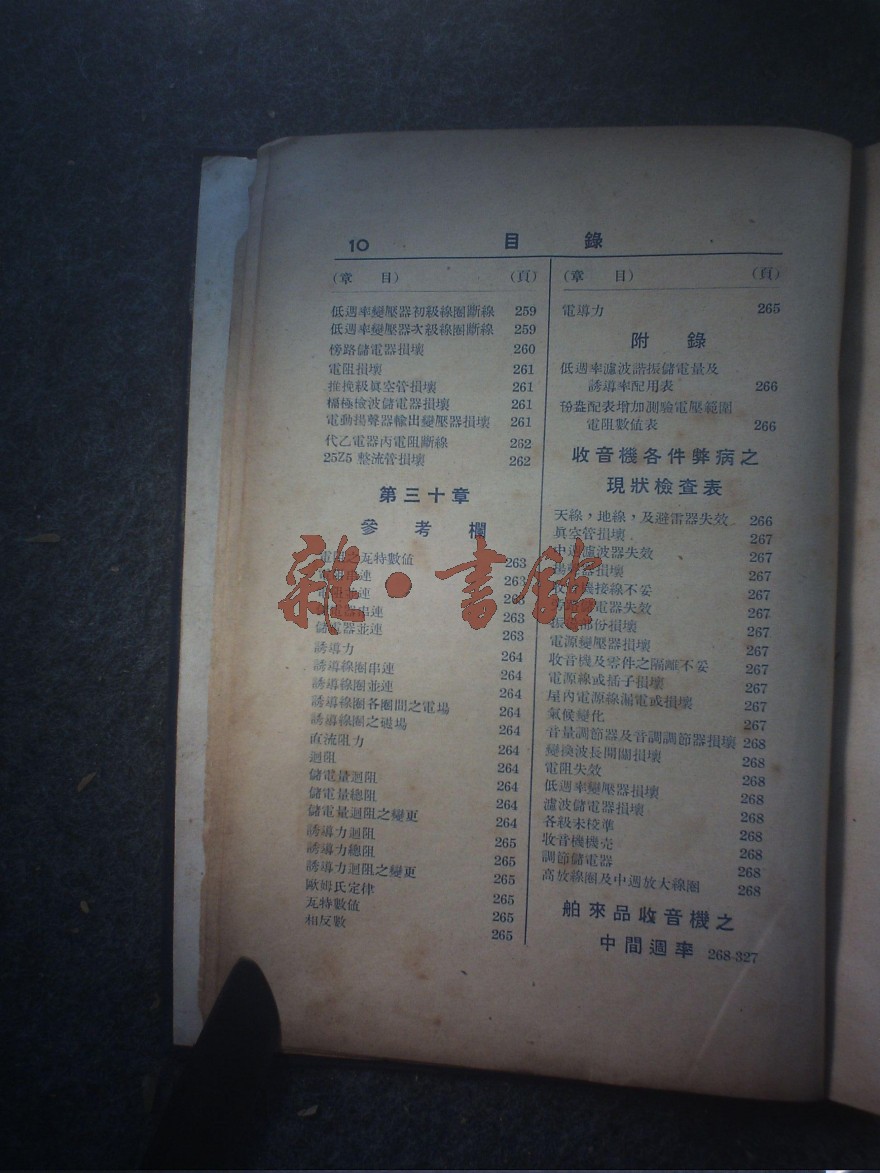 10 目 錄
(章 目) (頁)
低週率變壓器初級線圈斷線 259
低週率變壓器次級線圈斷線 259
傍路儲電器損壞 260
電阻損壞 261
推挽級眞空管損壞 261
柵極檢波儲電器損壞 261
電動揚聲器輸出變壓器損壞 261
代乙電器丙電阻斷線 262
25Z5 整流管損壞 262
第三十章
參考欄
電阻之瓦特數值 263
串連 263
連 263
電器串連 263
儲電器並連 263
誘導力 264
誘導線圈串連 264
誘導線圈並連 264
誘導線圈各圈間之電場 264
誘導線圈之磁場 264
直流阻力 264
迴阻 264
儲電量迴阻 264
儲電量總阻 264
儲電量迴阻之變更 264
誘導力迴阻 265
誘導力總阻 265
誘導力迴阻之變更 265
歐姆氏定律 265
瓦特數值 265
相反數 265
(章 目) (頁)
電導力 265
附 錄
低週率濾波諧振儲電量及
誘導率配用表 266
配表增加測驗電壓範圍
電阻數值表 266
收音機各件弊病之
現狀檢查表
天線，地線，及避雷器失效 266
眞空管損壞 267
中週濾波器失效 267
器損壞 267
收音機接線不妥 267
電器失效 267
振 部份損壞 267
電源變壓器損壞 267
收音機及零件之隔離不妥 267
電源線或插子損壞 267
屋內電源線漏電或損壞 267
氣候變化 267
音量調節器及音調調節器損壞 268
變換波長開關損壞 268
電阻失效 268
低週率變壓器損壞 268
濾波儲電器損壞 268
各級未校準 268
收音機機壳 268
調節儲電器 268
高放線圈及中週放大線圈 268
舶來品收音機之
中間週率 268-327
雜·書館